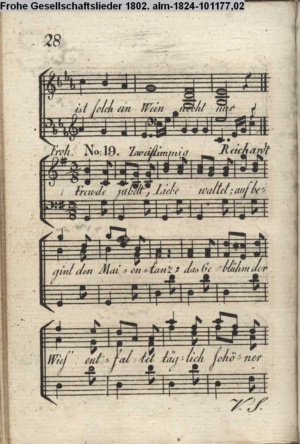 Frohe Gesellschaftslieder 1802. alm-1824-101177,02
28
ist solch ein Wein nicht nur
Froh. No: 19. Zweistimmig Reichardt
Freude jubelt, Liebe waltet: auf be-
gint den Mai-en-tanz: das Ge-blühm der
Wies' ent-fal-tet täg-lich schö-ner
V. S.